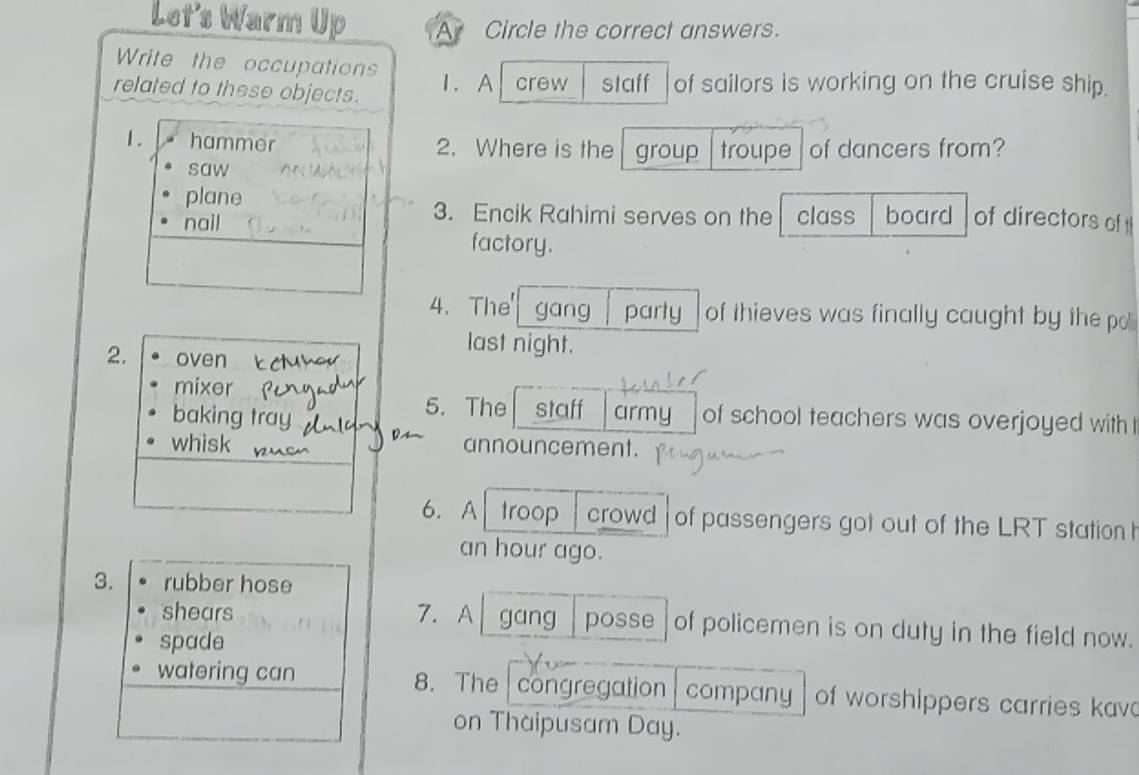 Let's Warm Up
Write the occupations
related to these objects.
1. • hammer
• saw
• plane
• nail
2. • oven
• mixer
• baking tray
• whisk
3. • rubber hose
• shears
• spade
• watering can
A Circle the correct answers.
1. A crew staff of sailors is working on the cruise ship.
2. Where is the group troupe of dancers from?
3. Encik Rahimi serves on the class board of directors of
factory.
4. The gang party of thieves was finally caught by the
last night.
5. The staff army of school teachers was overjoyed with
announcement.
6. A troop crowd of passengers got out of the LRT station
an hour ago.
7. A gang posse of policemen is on duty in the field now.
8. The congregation company of worshippers carries
on Thaipusam Day.